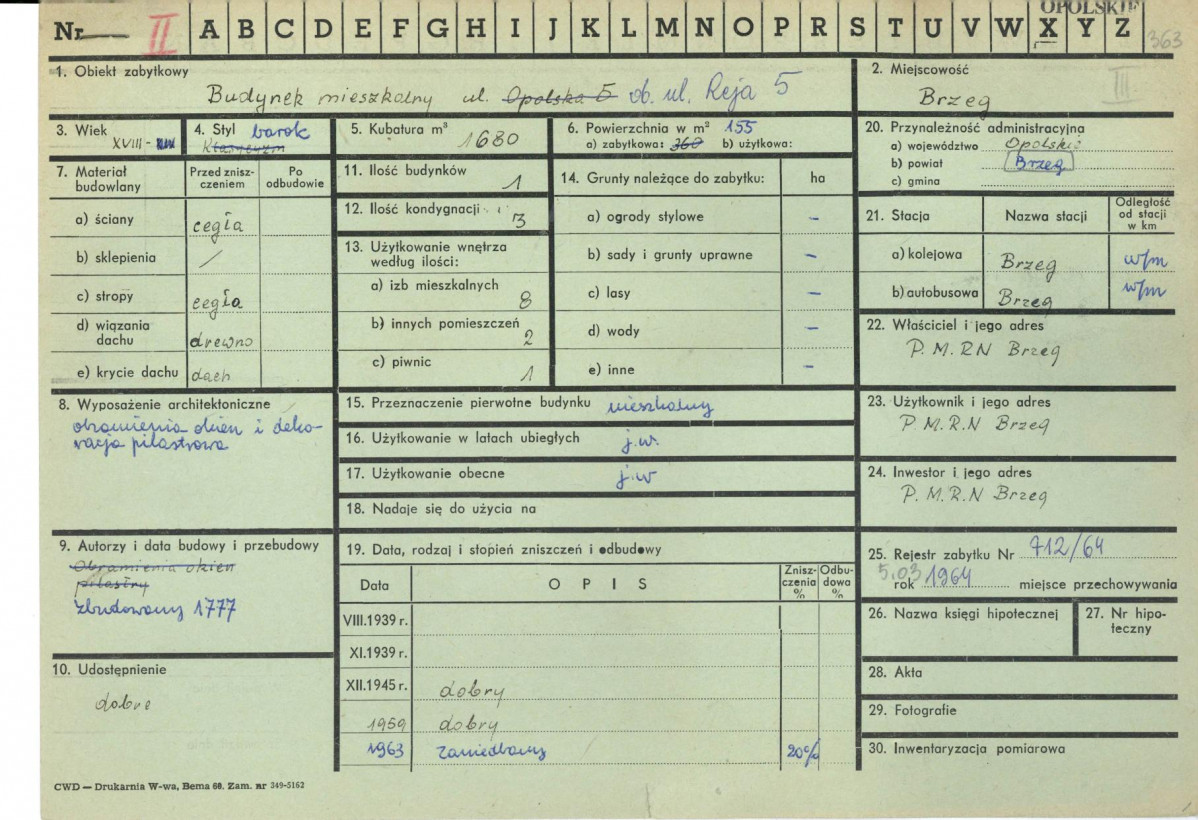 OPOLSKIE
Nr II A B C D E F G H I J K L M N O P R S T U V W X Y Z 363
1. Obiekt zabytkowy
Budynek mieszkalny ul. Opolska 5 ob. ul. Reja 5
2. Miejscowość
III
Brzeg
3. Wiek
XVIII - XIX
4. Styl barok
Klasycyzm
5. Kubatura m³
1680
6. Powierzchnia w m² 155
a) zabytkowa: 360 b) użytkowa:
20. Przynależność administracyjna
a) województwo Opolskie
b) powiat Brzeg
c) gmina
7. Materiał budowlany
Przed znisz-
czeniem
Po
odbudowie
a) ściany cegła
b) sklepienia /
c) stropy cegła
d) wiązania
dachu drewno
e) krycie dachu dach
11. Ilość budynków
1
12. Ilość kondygnacji
3
13. Użytkowanie wnętrza
według ilości:
a) izb mieszkalnych
8
b) innych pomieszczeń
2
c) piwnic
1
14. Grunty należące do zabytku: ha
a) ogrody stylowe –
b) sady i grunty uprawne –
c) lasy –
d) wody –
e) inne –
21. Stacja Nazwa stacji
Odległość
od stacji
w km
a) kolejowa Brzeg w/m
b) autobusowa Brzeg w/m
22. Właściciel i jego adres
P. M. RN Brzeg
8. Wyposażenie architektoniczne
obramienia okien i deko-
racja pilastrowa
15. Przeznaczenie pierwotne budynku mieszkalny
16. Użytkowanie w latach ubiegłych j.w.
17. Użytkowanie obecne j.w
18. Nadaje się do użycia na
23. Użytkownik i jego adres
P. M. R.N Brzeg
24. Inwestor i jego adres
P. M. R.N Brzeg
9. Autorzy i data budowy i przebudowy
Obramienia okien
pilastry
zbudowany 1777
10. Udostępnienie
dobre
19. Data, rodzaj i stopień zniszczeń i odbudowy
Data OPIS
Znisz-
czenia
%
Odbu-
dowa
%
VIII.1939 r.
XI.1939 r.
XII.1945 r. dobry
1959 dobry
1963 zaniedbany 20%
25. Rejestr zabytku Nr 712/64
5.03
rok 1964 miejsce przechowywania
26. Nazwa księgi hipotecznej
27. Nr hipo-
teczny
28. Akta
29. Fotografie
30. Inwentaryzacja pomiarowa
CWD — Drukarnia W-wa, Bema 60. Zam. nr 349-5162